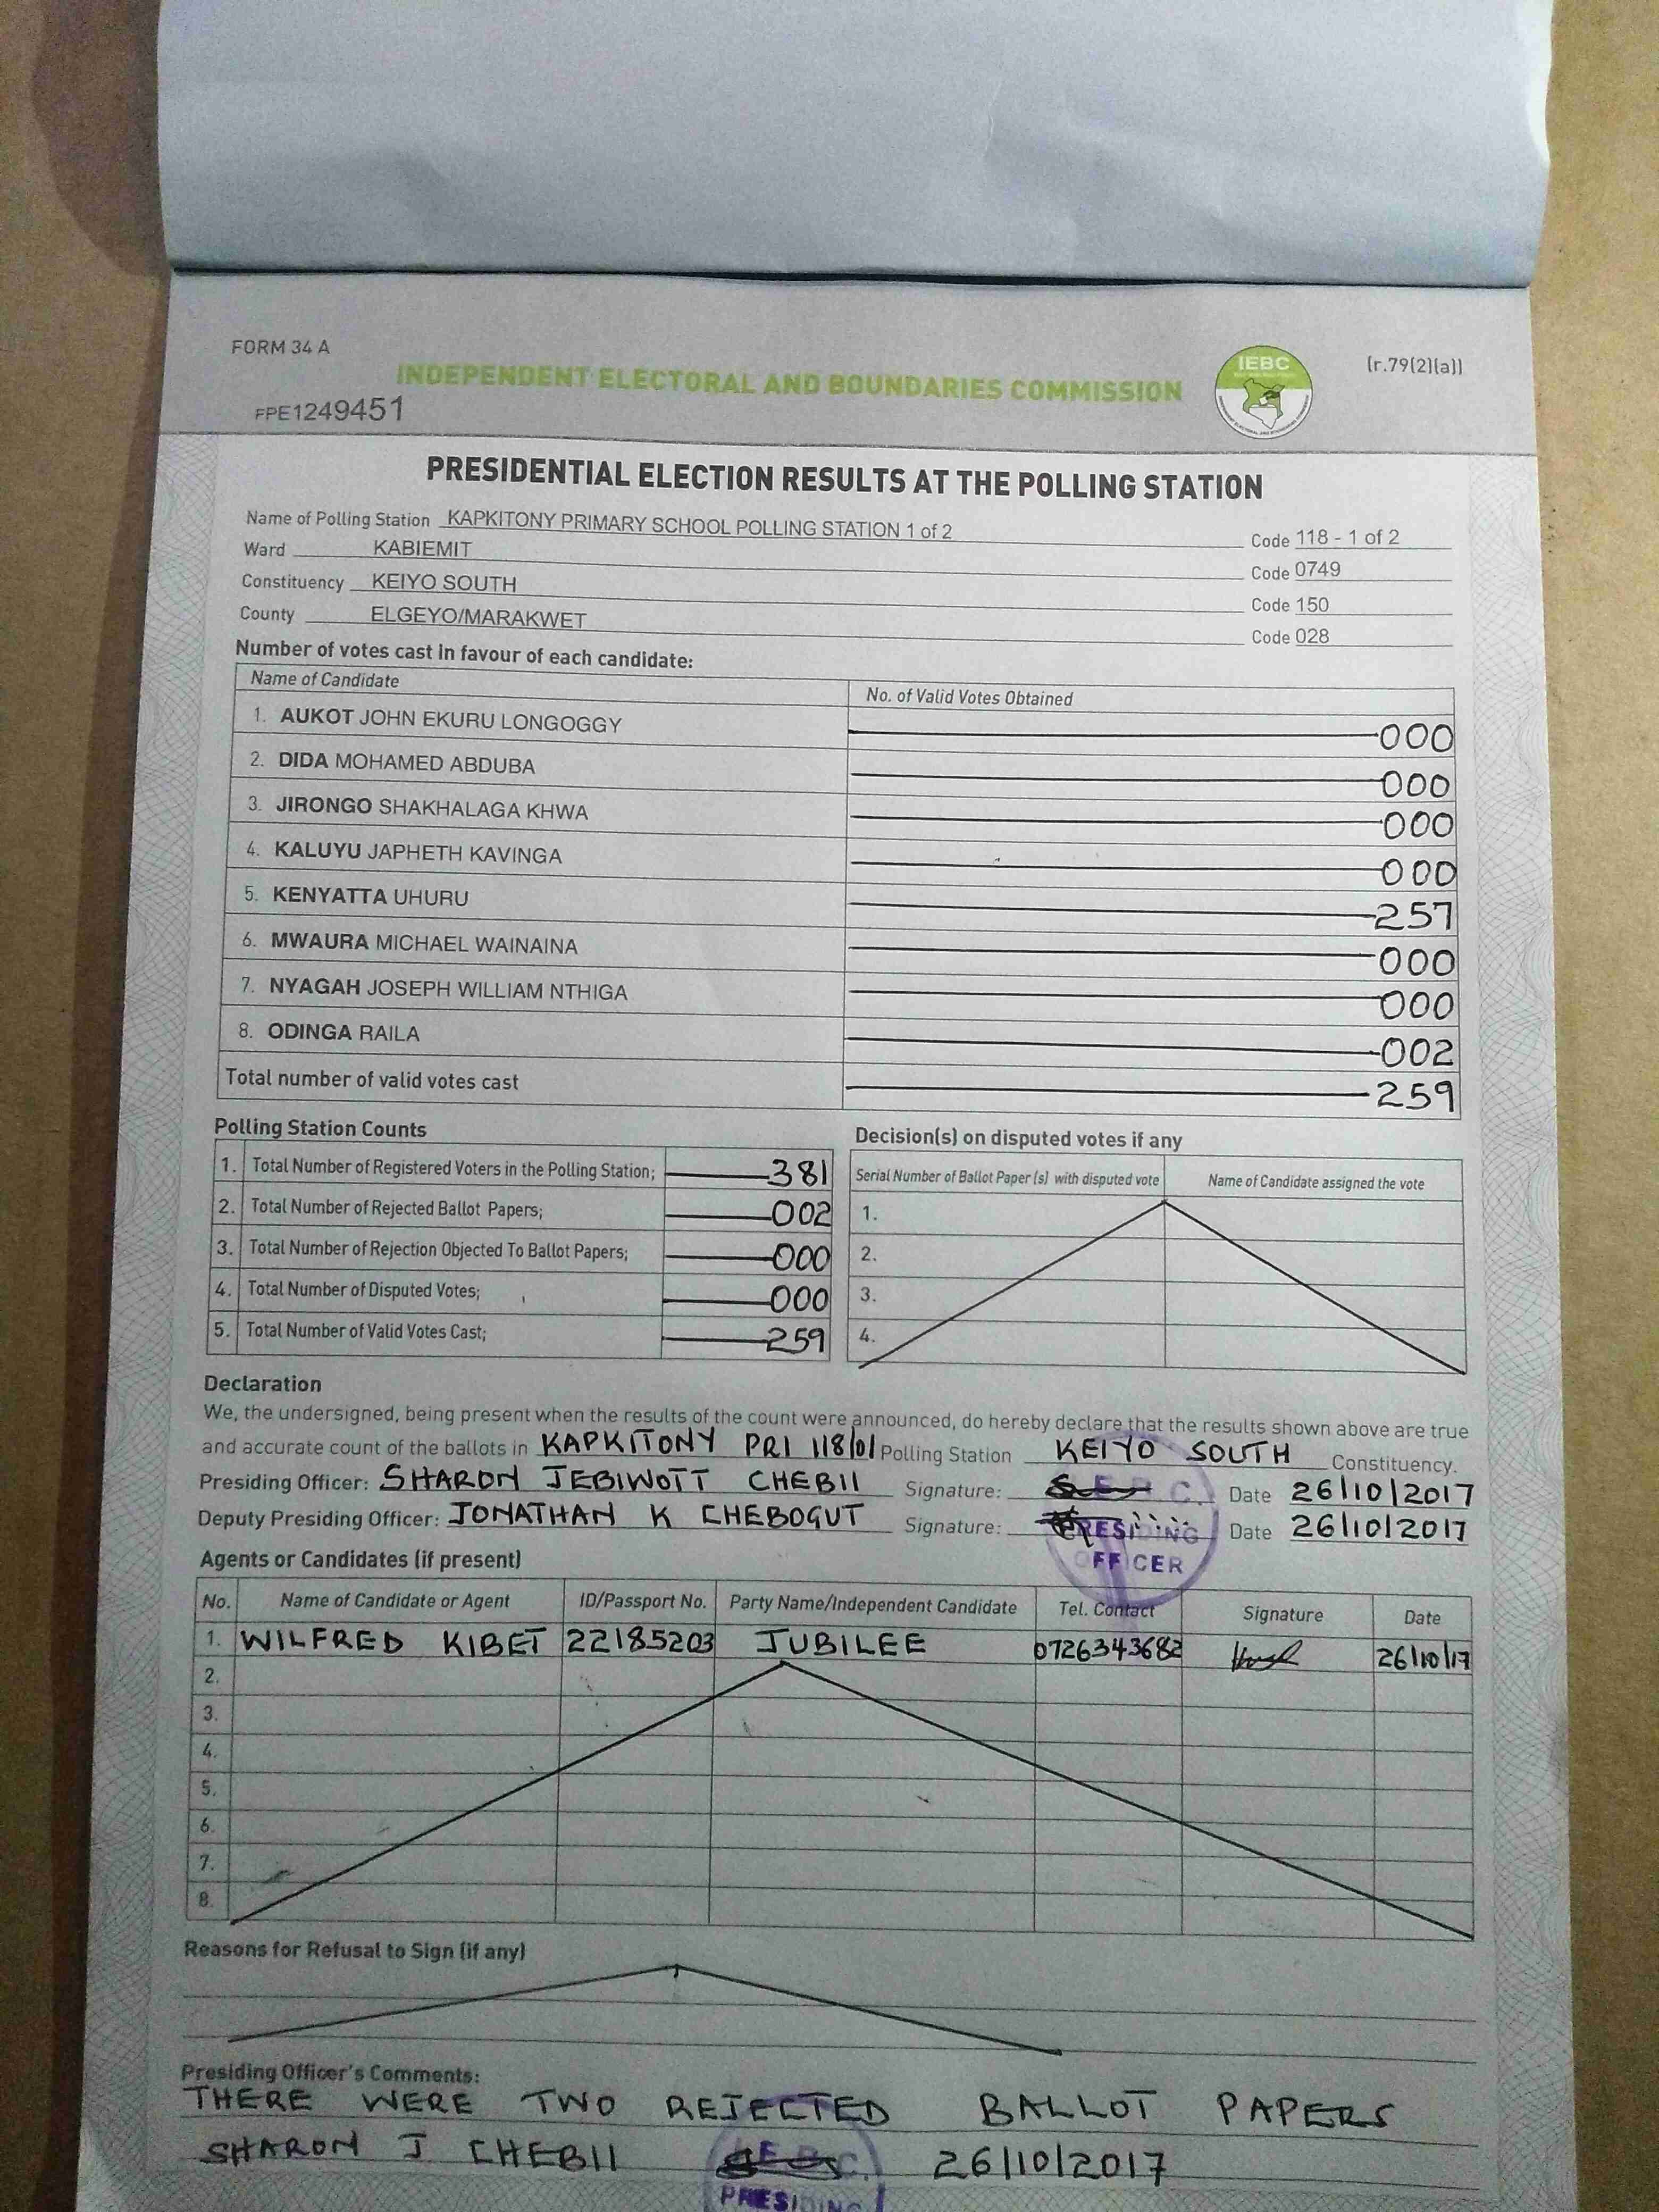 FORM 34 A
INDEPENDENT ELECTORAL AND BOUNDARIES COMMISSION
IEBC
(r.79(2)(a))
FPE1249451
PRESIDENTIAL ELECTION RESULTS AT THE POLLING STATION
Name of Polling Station KAPKITONY PRIMARY SCHOOL POLLING STATION 1 of 2 Code 118 - 1 of 2
Ward KABIEMIT Code 0749
Constituency KEIYO SOUTH Code 150
County ELGEYO/MARAKWET Code 028
Number of votes cast in favour of each candidate:
Name of Candidate No. of Valid Votes Obtained
1. AUKOT JOHN EKURU LONGOGGY 000
2. DIDA MOHAMED ABDUBA 000
3. JIRONGO SHAKHALAGA KHWA 000
4. KALUYU JAPHETH KAVINGA 000
5. KENYATTA UHURU 257
6. MWAURA MICHAEL WAINAINA 000
7. NYAGAH JOSEPH WILLIAM NTHIGA 000
8. ODINGA RAILA 002
Total number of valid votes cast 259
Polling Station Counts
1. Total Number of Registered Voters in the Polling Station; 381
2. Total Number of Rejected Ballot Papers; 002
3. Total Number of Rejection Objected To Ballot Papers; 000
4. Total Number of Disputed Votes; 000
5. Total Number of Valid Votes Cast; 259
Decision(s) on disputed votes if any
Serial Number of Ballot Paper (s) with disputed vote Name of Candidate assigned the vote
1.
2.
3.
4.
Declaration
We, the undersigned, being present when the results of the count were announced, do hereby declare that the results shown above are true
and accurate count of the ballots in KAPKITONY PRI 118/01 Polling Station KEIYO SOUTH Constituency.
Presiding Officer: SHARON JEBIWOTT CHEBII Signature: Date 26/10/2017
Deputy Presiding Officer: JONATHAN K CHEBOGUT Signature: Date 26/10/2017
PRESIDING
OFFICER
Agents or Candidates (if present)
No. Name of Candidate or Agent ID/Passport No. Party Name/Independent Candidate Tel. Contact Signature Date
1. WILFRED KIBET 22185203 JUBILEE 0726343682 26/10/17
2.
3.
4.
5.
6.
7.
8.
Reasons for Refusal to Sign (if any)
Presiding Officer's Comments:
THERE WERE TWO REJECTED BALLOT PAPERS
SHARON J CHEBII 26/10/2017
PRESIDING